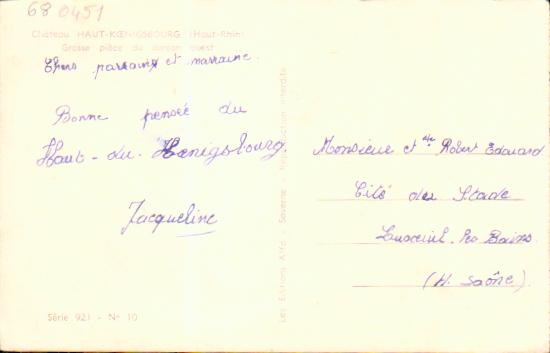 68 0451
Château HAUT-KŒNIGSBOURG (Haut-Rhin)
Grosse pièce du donjon ouest
Chers parrain et marraine
Bonne pensée du
Haut-du-Hœnigsbourg.
Jacqueline
Série 921 - N° 10
Les Editions Alfa - Saverne - Reproduction interdite
Monsieur et Robert Edouard
Cité du Stade
Luxeuil-les Bains
(H. Saône)